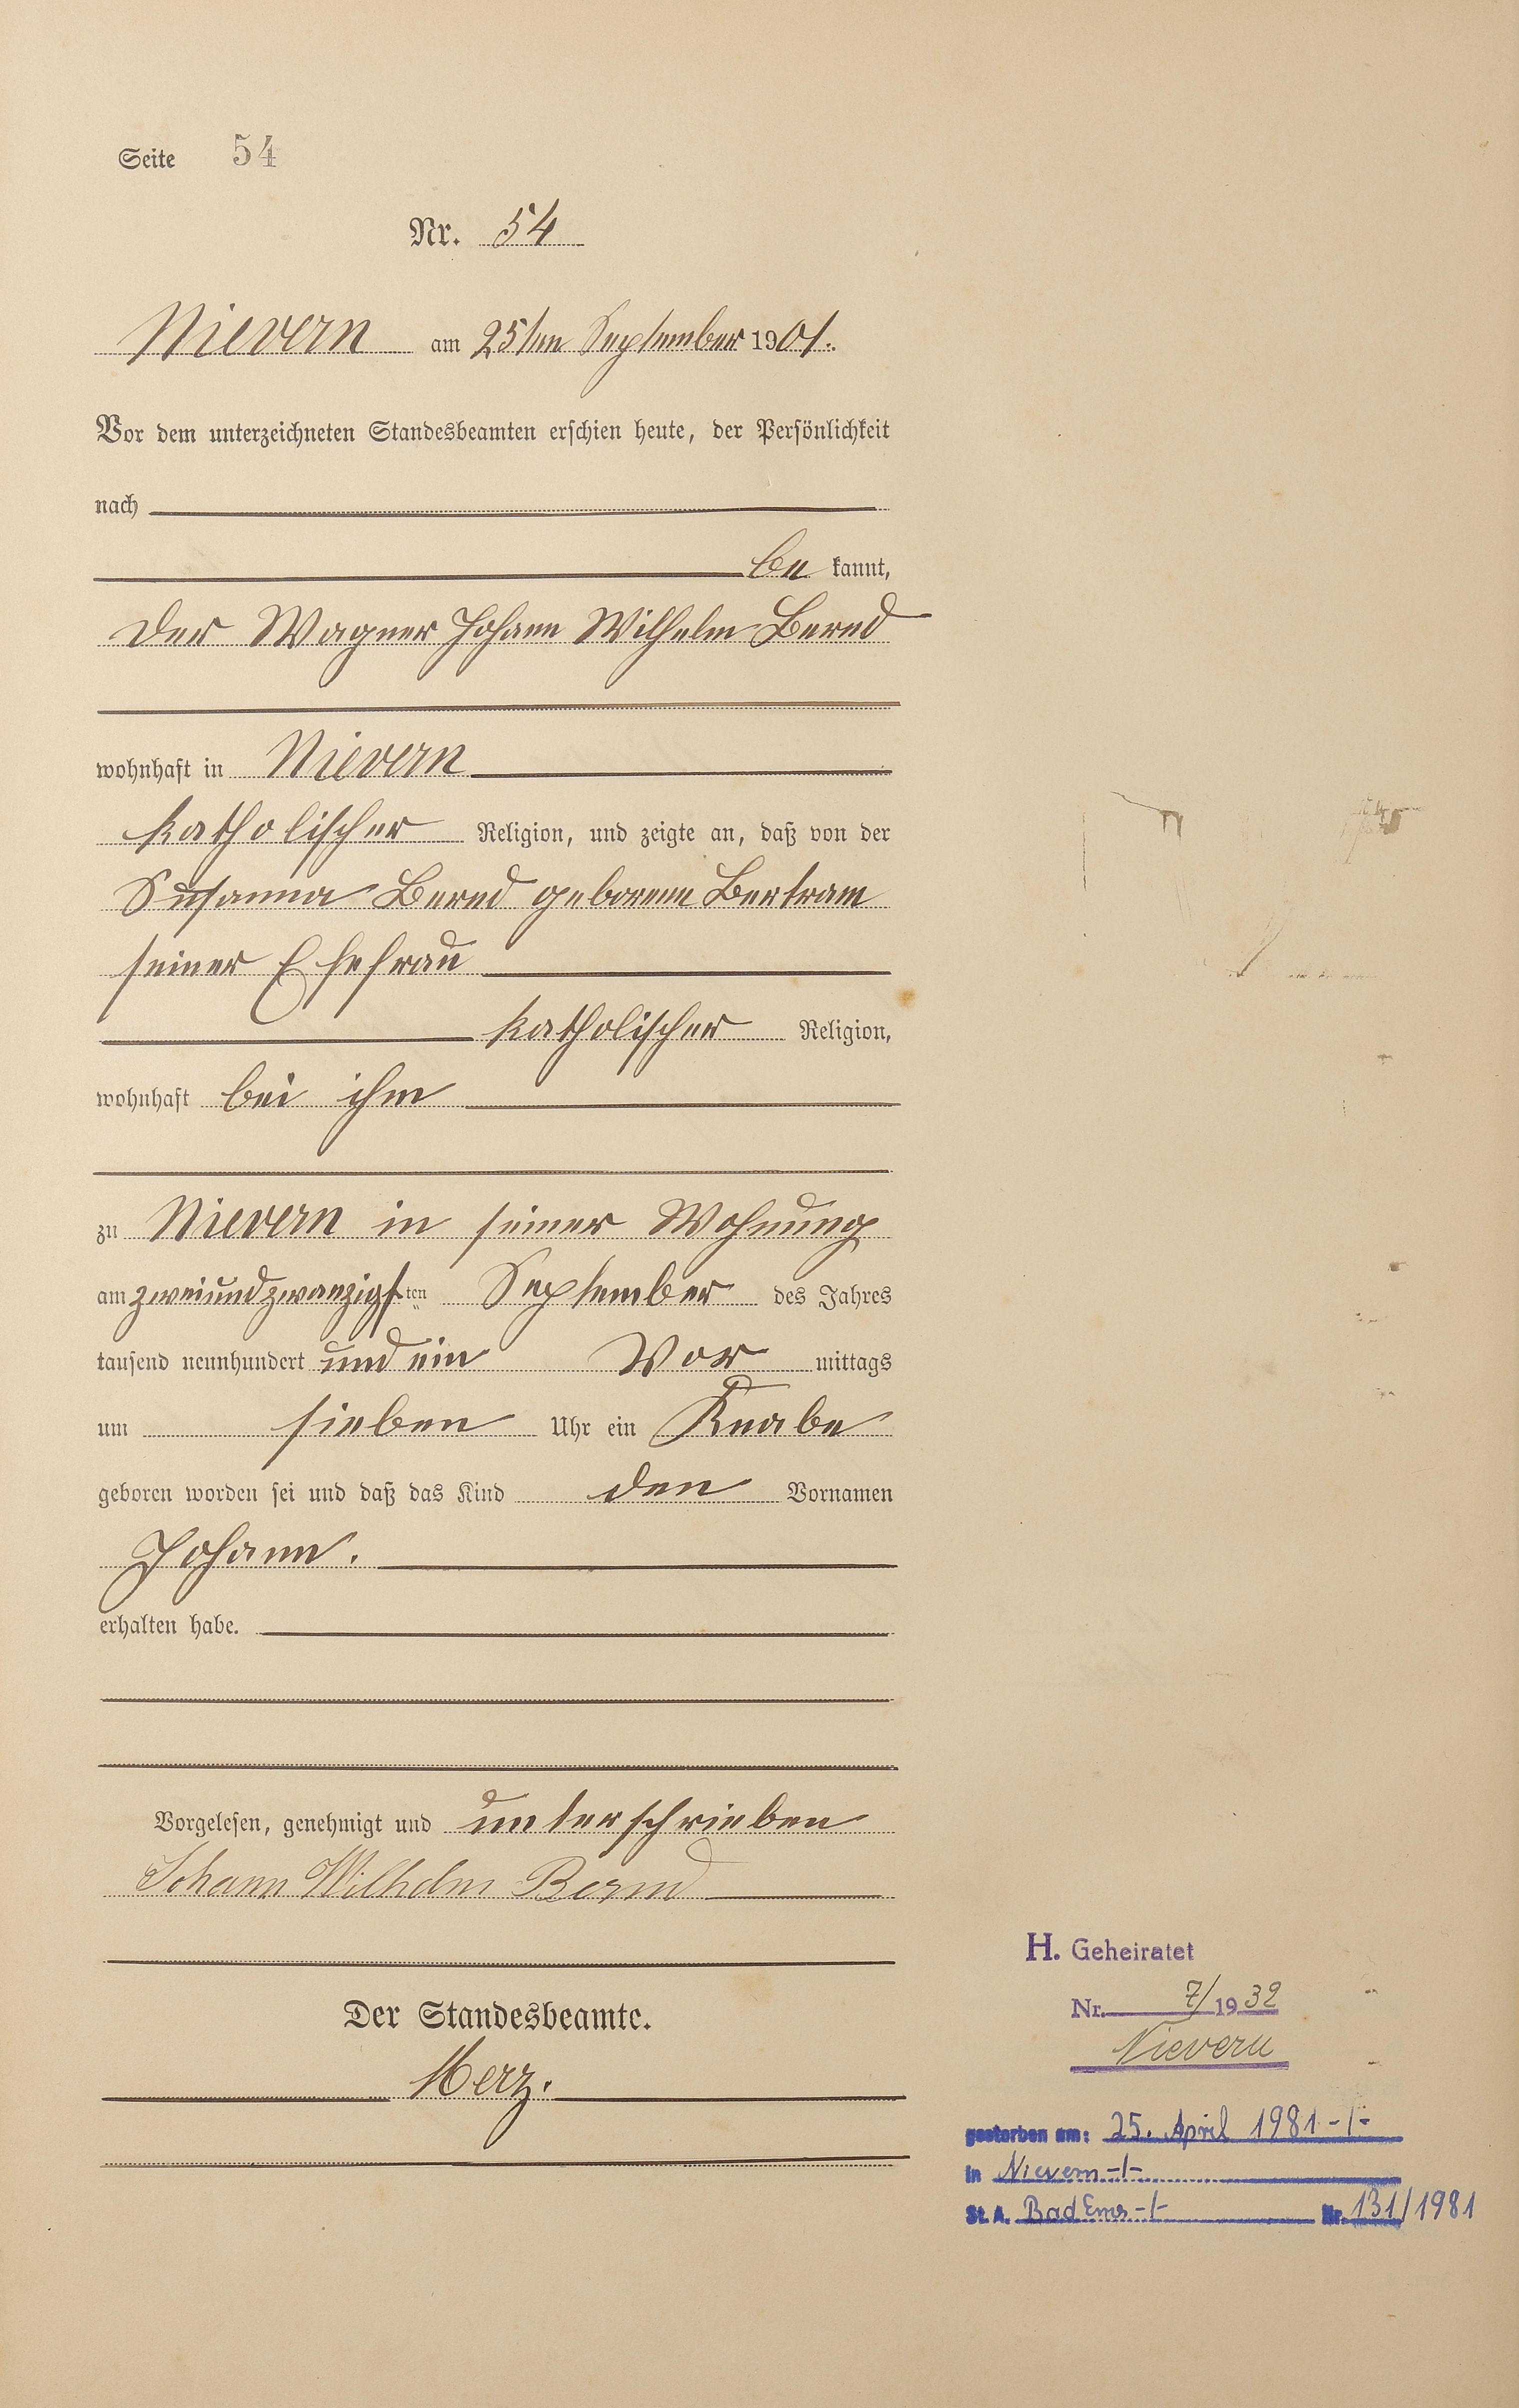 Seite 54
Nr. 54
Nievern am 25ten September 1901.
Vor dem unterzeichneten Standesbeamten erschien heute, der Persönlichkeit
nach
be kannt,
der Wagner Johann Wilhelm Bernd
wohnhaft in Nievern
katholischer Religion, und zeigte an, daß von der
Susanna Bernd geborene Bertram
seiner Ehefrau
katholischer Religion,
wohnhaft bei ihm
zu Nievern in seiner Wohnung
am zweiundzwanzigsten September des Jahres
tausend neunhundert und ein Vor mittags
um sieben Uhr ein Knabe
geboren worden sei und daß das Kind den Vornamen
Johann.
erhalten habe.
Vorgelesen, genehmigt und unterschrieben
Johann Wilhelm Bernd
Der Standesbeamte.
Merz.
H. Geheiratet
Nr. 7/1932
Nievern
gestorben am: 25. April 1981 -/-
in Nievern -/-
St. A. Bad Ems -/- Nr. 131/1981